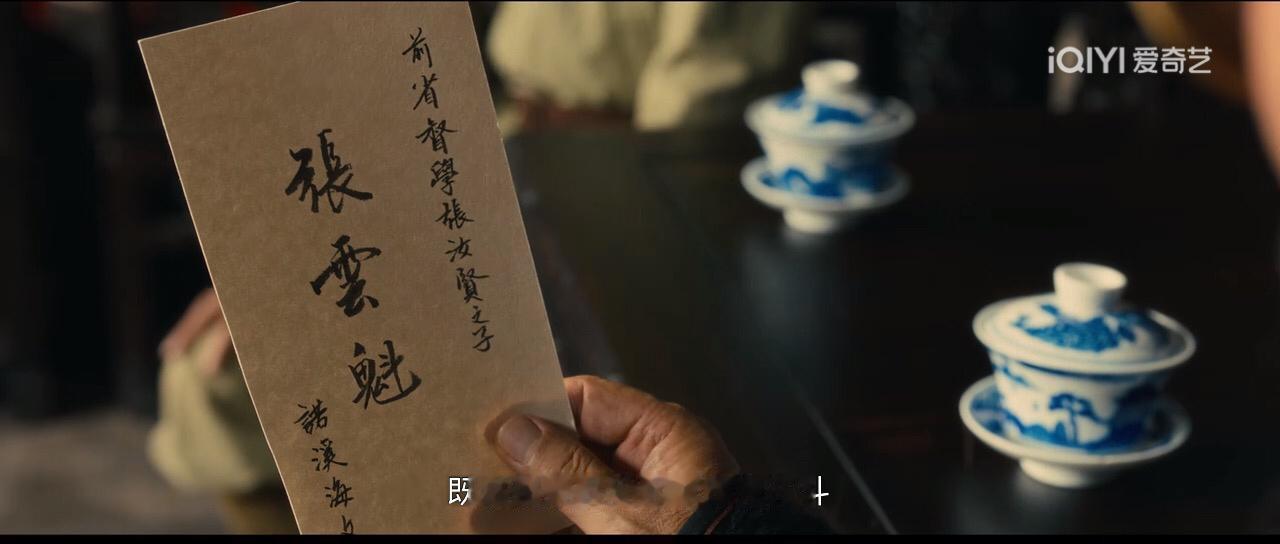 iQIYI 爱奇艺
前省督學張汝賢之子
張雲魁
諾溪海
既